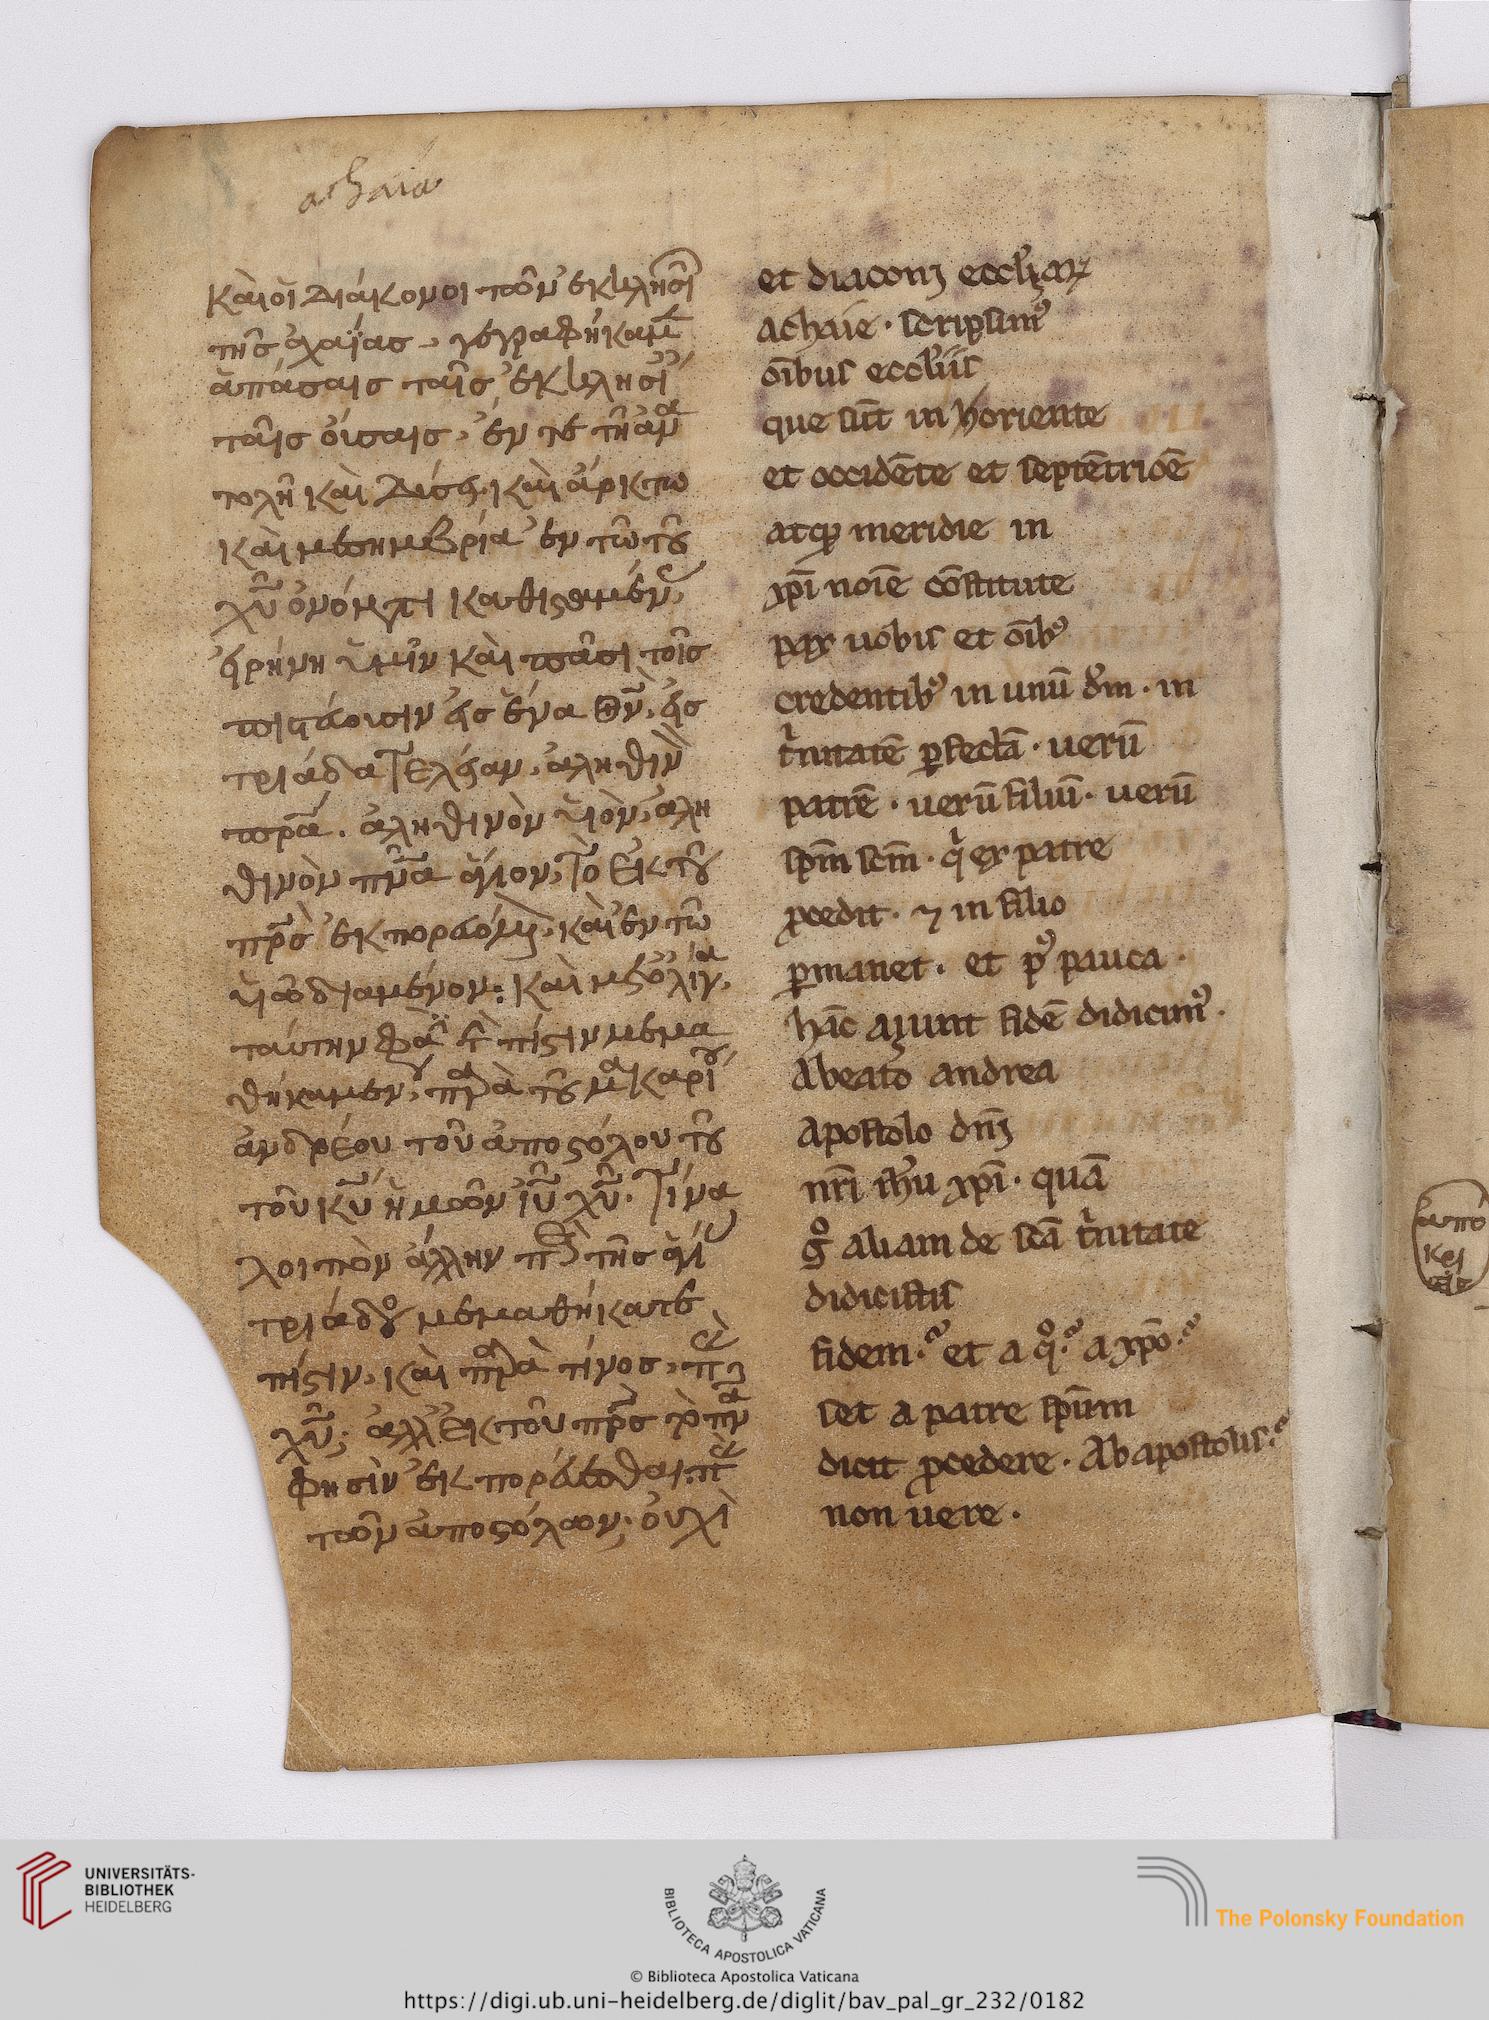 achaia
Καὶ οἱ διάκονοι τῶν ἐκκλησι
τῆς ἀχαΐας, γεγραφήκαμ
ἁπάσαις ταῖς ἐκκλησι
ταῖς οὔσαις, ἔν τε τῇ ἀνα
τολῇ καὶ δύσει καὶ ἄρκτω
καὶ μεσημβρία ἐν τῶ τοῦ
χῦ ὀνόματι καθισαμέν
εἰρήνη ὑμῖν καὶ πᾶσι τοῖς
πιστεύουσιν εἰς ἕνα θν, εἰς
τριάδα τελείαν, ἀληθιν
πρα. ἀληθινὸν υἱὸν, ἀλη
θινὸν πνα ἅγιον, τὸ ἐκ τοῦ
πρς ἐκπορευόμ, καὶ ἐν τῶ
υἱῶ διαμένον: καὶ μετ ὀλίγα,
ταύτην πίστιν μεμα
θήκαμεν, παρὰ τοῦ μακαρί
ἀνδρέου τοῦ ἀποστόλου τοῦ
τοῦ κυ ἡμῶν ιυ χυ. Τίνα
λοιπὸν ἄλλην τῆς ἁγί
τριάδο μεμαθήκατε
πίστιν, καὶ παρὰ τίνος,
χυ; ἀλλ ἐκ τοῦ πρς τὸ πνα
φησὶν ἐκπορεύεσθαι.
τῶν ἀποστόλων; οὐχὶ
et diaconi eccl'iaꝝ
achaie · scripsimꝰ
oi̅bus eccl'iis
que su̅t in horiente
et occide̅te et septe̅trio̅e
atqꝫ meridie in
xp̅i noi̅e co̅stitute
pax uobis et oi̅bꝰ
credentibꝰ in unu̅ d'm · in
t'nitate̅ ꝑfecta̅ · ueru̅
patre̅ · ueru̅ filiu̅ · ueru̅
sp̅m sc̅m · q' ex patre
ꝓcedit · ⁊ in filio
ꝑmanet · et pꝰ pauca ·
ha̅c aiunt fide̅ didicimꝰ ·
A beato andrea
apostolo dn̅i
nr̅i ih'u xp̅i · qua̅
gº aliam de sc̅a t'nitate
didicistis
fidem ·? et a qº ·? a xp̅o ·?
set a patre sp̅um
dicit ꝓcedere · Ab apostolis ·?
non uere ·
ἀπο
κρι
UNIVERSITÄTS-
BIBLIOTHEK
HEIDELBERG
BIBLIOTECA APOSTOLICA VATICANA
© Biblioteca Apostolica Vaticana
The Polonsky Foundation
https://digi.ub.uni-heidelberg.de/diglit/bav_pal_gr_232/0182